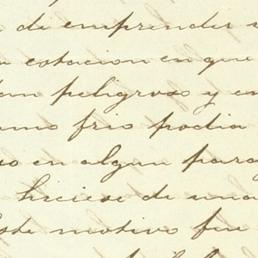 de emprender
estacion en que
tan peligroso y en
frio podia
en algun para
hiciese de una
Este motivo fue